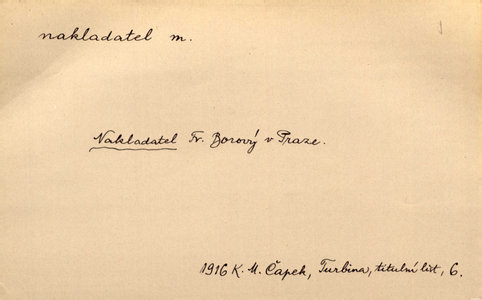 nakladatel m.
Nakladatel Fr. Borový v Praze.
1916 K. M. Čapek, Turbina, titulní list, 6.